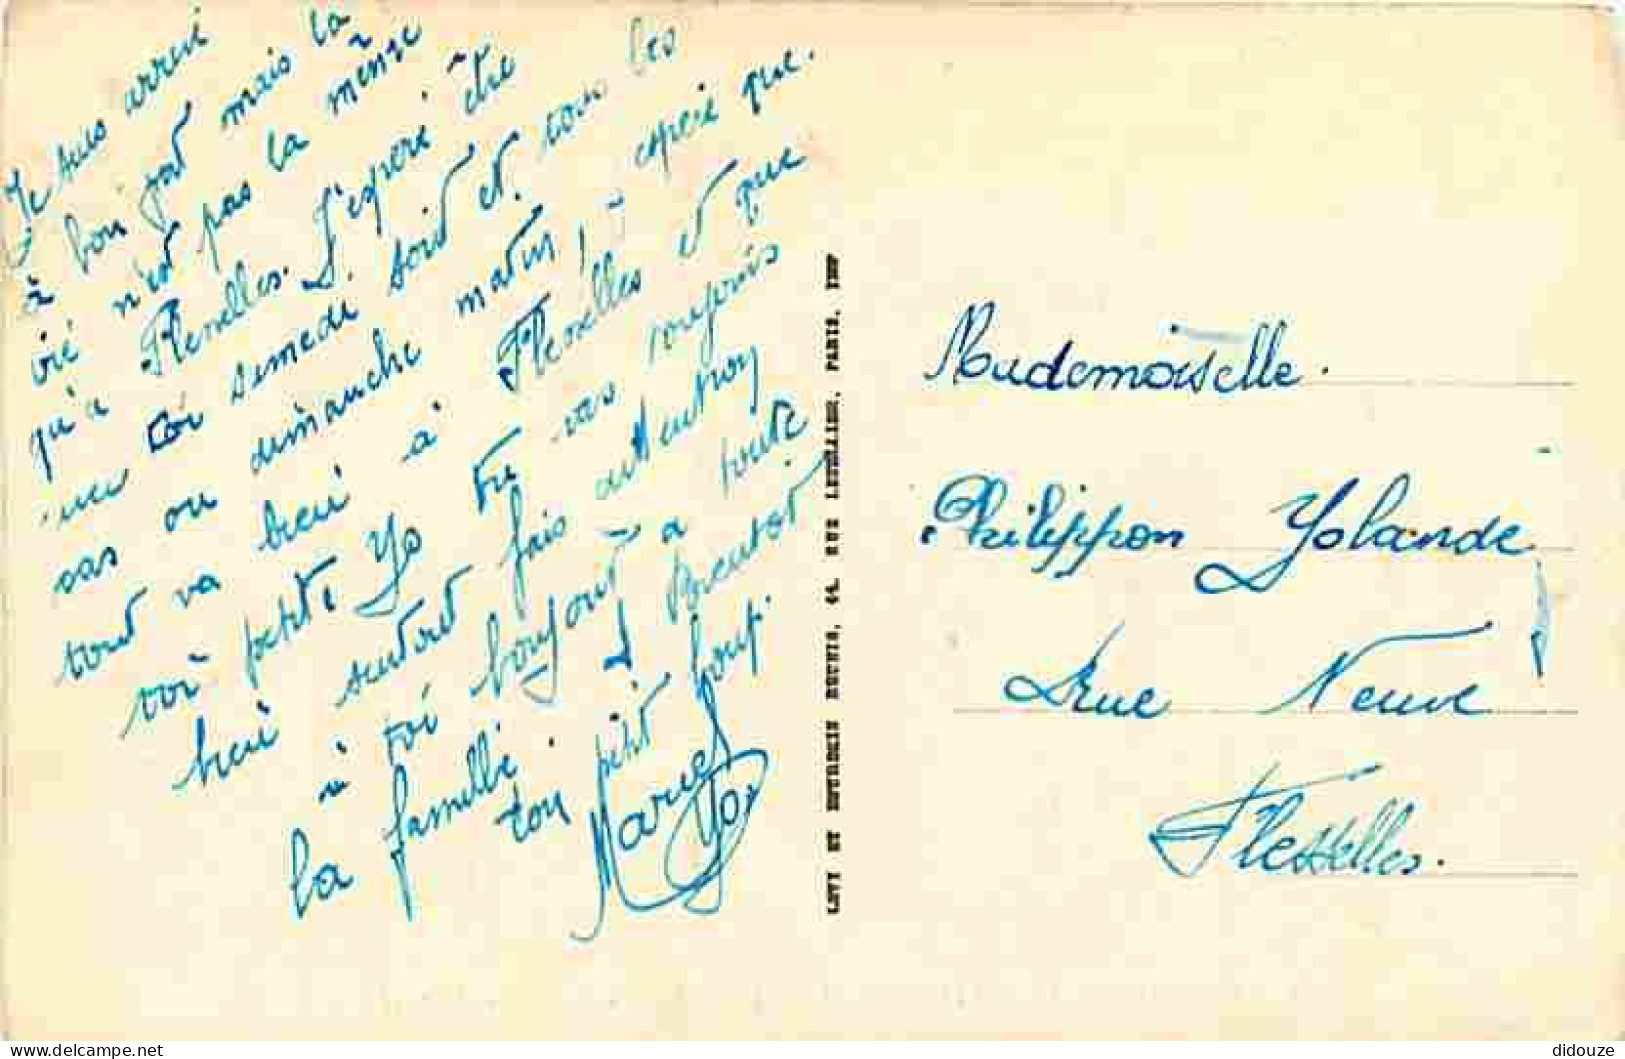 Je suis arrivé
à bon port mais la
vie n'est pas la même
qu'a Flesselles. J'espere être
samedi soir et tous les
ou dimanche matin j'espere que.
tout va bien à Flesselles et que
toi petite Yo tu vas
bien surtout fais attention
à toi bonjour a toute
la famille. Bientot
ton petit loup.
Marcel
Yo
LEVY ET NEURDEIN REUNIS, 44, RUE LETELLIER, PARIS, IMP
Mademoiselle.
Philippon Yolande
Rue Neuve
Flesselles.
delcampe.net
didouze